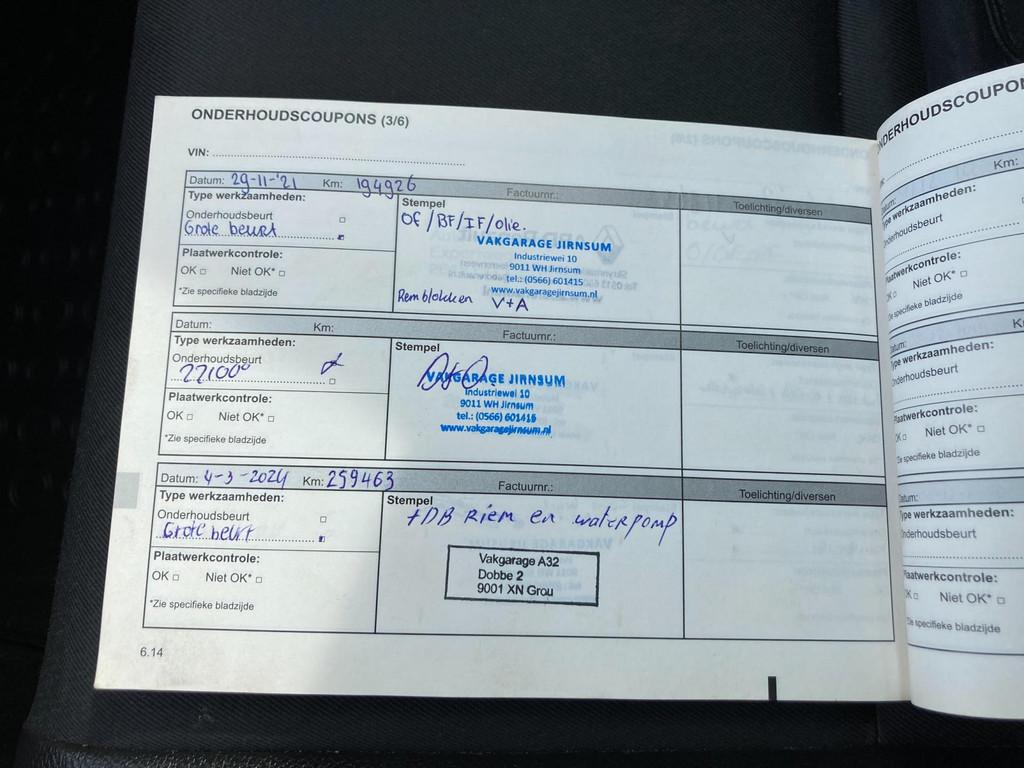 ONDERHOUDSCOUPONS (3/6)
VIN:
Datum: 29-11-'21 Km: 194926 Factuurnr.: Toelichting/diversen
Type werkzaamheden:
Onderhoudsbeurt
Grote beurt
Plaatwerkcontrole:
OK Niet OK*
*Zie specifieke bladzijde
Stempel
OF/BF/IF/olie.
VAKGARAGE JIRNSUM
Industriewei 10
9011 WH Jirnsum
tel.: (0566) 601415
www.vakgaragejirnsum.nl
Remblokken V+A
Datum: Km: Factuurnr.: Toelichting/diversen
Type werkzaamheden:
Onderhoudsbeurt
221000
Plaatwerkcontrole:
OK Niet OK*
*Zie specifieke bladzijde
Stempel
VAKGARAGE JIRNSUM
Industriewei 10
9011 WH Jirnsum
tel.: (0566) 601415
www.vakgaragejirnsum.nl
Datum: 4-3-2024 Km: 259463 Factuurnr.: Toelichting/diversen
Type werkzaamheden:
Onderhoudsbeurt
Grote beurt
Plaatwerkcontrole:
OK Niet OK*
*Zie specifieke bladzijde
Stempel
+DB Riem en waterpomp
Vakgarage A32
Dobbe 2
9001 XN Grou
6.14
NDERHOUDSCOUPO
Km:
ype werkzaamheden:
nderhoudsbeurt
laatwerkcontrole:
Niet OK*
ie specifieke bladzijde
ype werkzaamheden:
nderhoudsbeurt
laatwerkcontrole:
Niet OK*
ie specifieke bladzijde
ype werkzaamheden:
nderhoudsbeurt
laatwerkcontrole:
Niet OK*
ie specifieke bladzijde